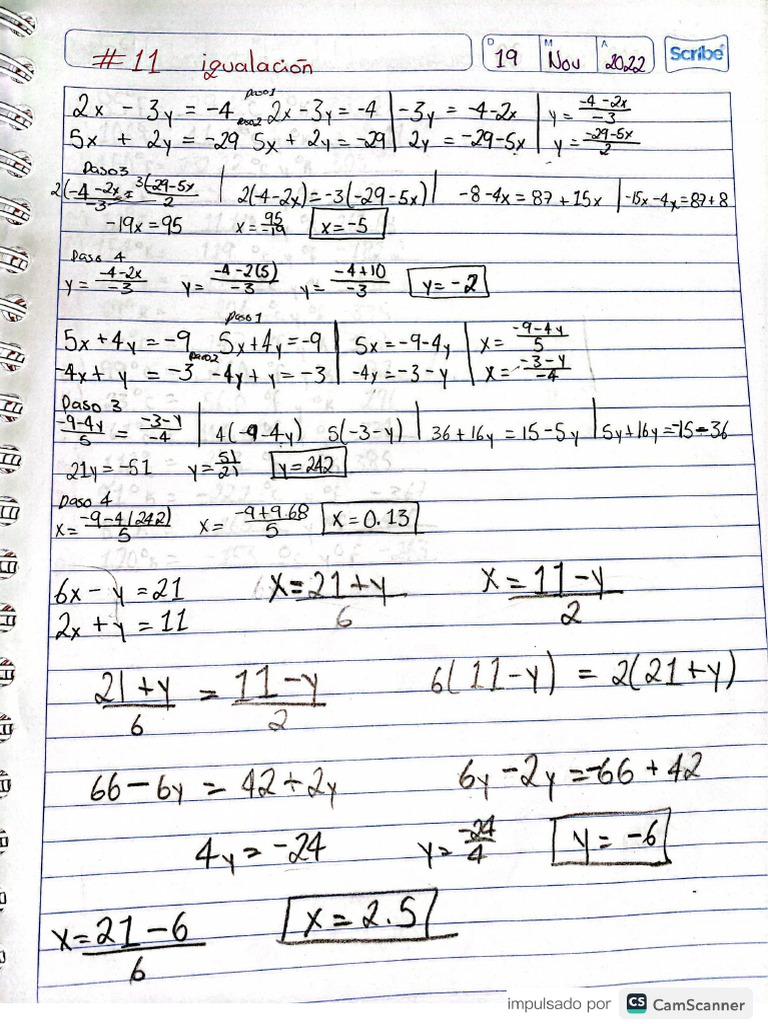 # 11 igualación
D 19 M Nov A 2022 Scribe
Paso1
2x - 3y = -4 2x - 3y = -4 | -3y = -4-2x | y = -4-2x/-3
Paso2
5x + 2y = -29 5x + 2y = -29 | 2y = -29-5x | y = -29-5x/2
Paso3
2(-4-2x/-3 = 3(-29-5x/2 | 2(-4-2x) = -3(-29-5x) | -8-4x = 87+15x | -15x-4x = 87+8
-19x = 95 x = 95/-19 x = -5
Paso 4
y = -4-2x/-3 y = -4-2(5)/-3 y = -4+10/-3 y = -2
Paso1
5x+4y = -9 5x+4y = -9 | 5x = -9-4y | x = -9-4y/5
Paso2
-4x+y = -3 -4y+y = -3 | -4y = -3-y | x = -3-y/-4
Paso 3
-9-4y/5 = -3-y/-4 | 4(-9-4y) 5(-3-y) | 36+16y = 15-5y | 5y+16y = -15-36
21y = -51 y = 51/21 y = 242
Paso 4
x = -9-4(242)/5 x = -9+9.68/5 x = 0.13
6x - y = 21 x = 21+y/6 x = 11-y/2
2x + y = 11
21+y/6 = 11-y/2 6(11-y) = 2(21+y)
66-6y = 42+2y 6y-2y = -66+42
4y = -24 y = -24/4 y = -6
x = 21-6/6 x = 2.5
impulsado por CS CamScanner